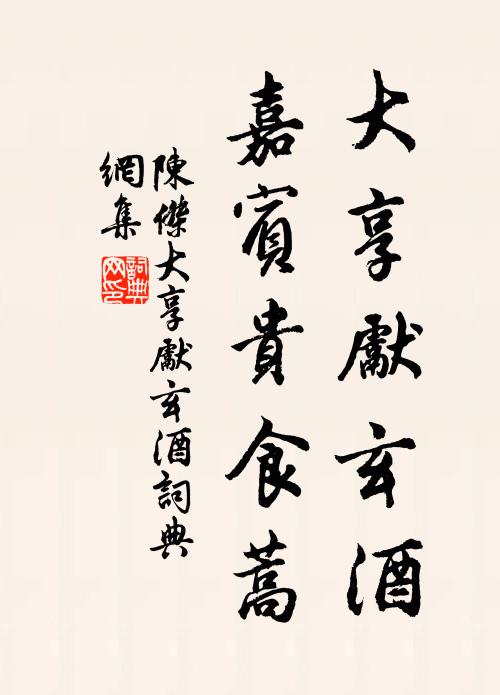 大享獻玄酒
嘉賓貴食蒿
陳傑大享獻玄酒詞典
網集
詞典
网印